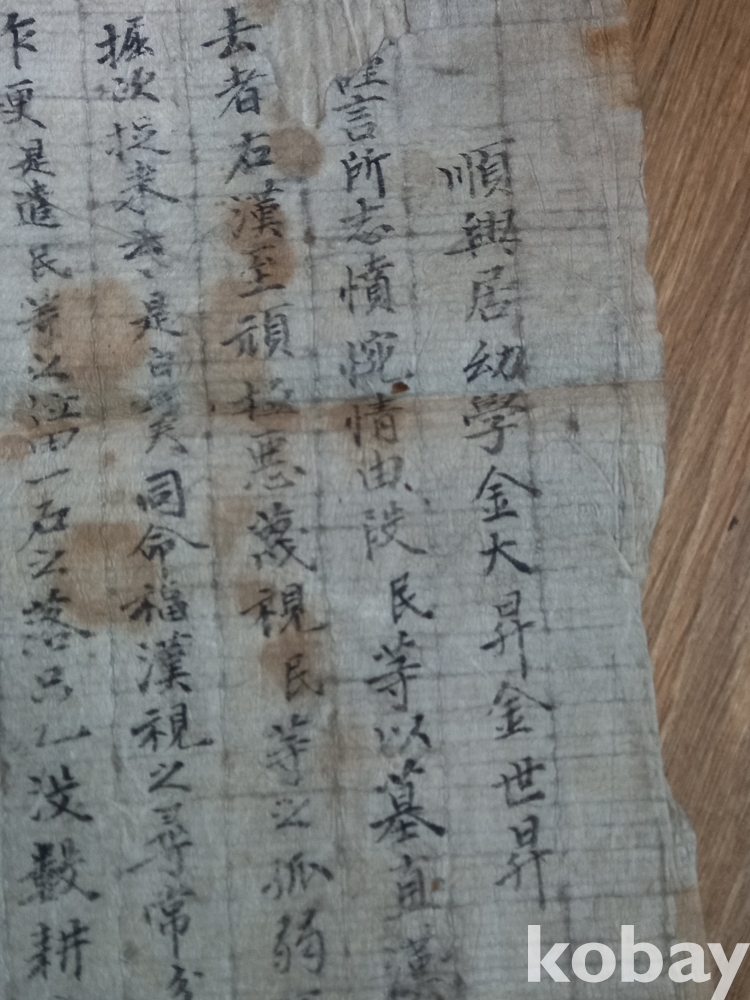 順興居幼學金大昇金世昇
言所志憤惋情由段民等以墓直漢
去者右漢至頑極惡蔑視民等之孤弱
掘次捉来是白矣同命福漢視之尋常
乍更是遣民等之位田一石之落只乙没數耕
kobay